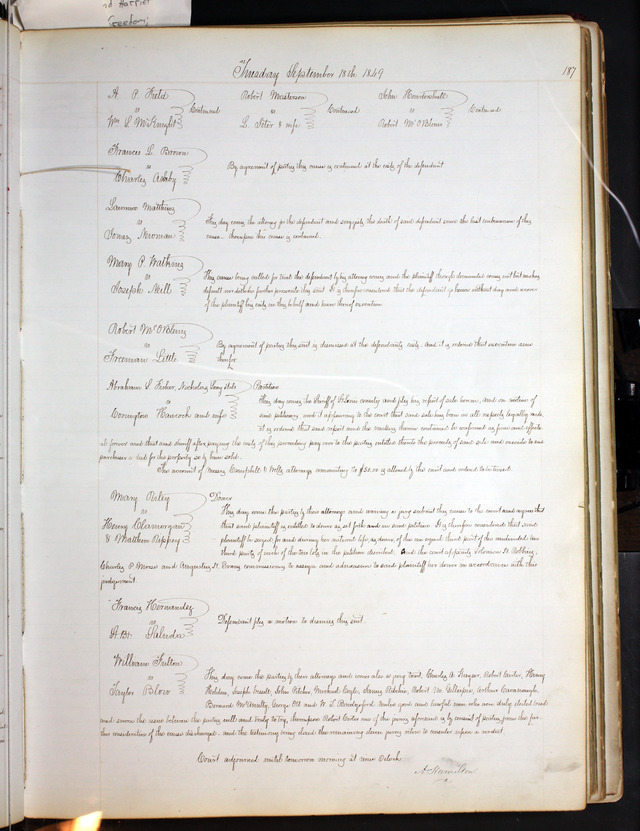 nd Harriet
Freedom;
Tuesday September 18th 1849
187
A. P. Field
vs
Wm S. McKnight
Continued
Robert Masterson
vs
L. Siter & wife
Continued
John
vs
Robert McOBlenis
Continued
Frances L. Brown
vs
Charles Ashby
By agreement of parties this cause is continued at the costs of the defendant
Matthews
vs
Jonas Newman
This day comes the attorney for the defendant and suggests the death of said defendant since the last continuance of this
cause. therefore this cause is continued.
Mary P. Watkins
vs
Joseph Mill
This cause being called for trial the defendant by his attorney comes and the plaintiff though demanded comes not but makes
default nor doth he further prosecute this suit. It is therefore considered that the defendant go hence without day and recover
of the plaintiff his costs in this behalf and have thereof execution
Robert McOBlenis
vs
Freeman Little
By agreement of parties this suit is dismissed at the defendants costs. and it is ordered that execution issue
therefor
Abraham S. Fisher, Nicholas
vs
Covington Hancock and wife
Partition
This day comes the Sheriff of St. Louis county and files his report of sale herein, and on motion of
said petitioners and it appearing to the court that said sale has been in all respects legally made,
it is ordered that said report and the doings herein contained be confirmed in form and effect
at forever and that said sheriff after paying the costs of this proceeding pay over to the parties entitled thereto the proceeds of said sale and execute to said
purchaser a deed for the property so by him sold.
The account of Messrs Campbell & Wells attorneys amounting to is allowed by the court and ordered to be
Mary Riley
vs
Henry Clamorgan
& Matthew Rippey
Dower
This day come the parties by their attorneys and waiving a jury submit this cause to the court and agree that
that said plaintiff is entitled to dower as set forth in said petition. It is therefore considered that said
plaintiff be seized for and during her natural life as dower, of the one equal third part of the undivided two
third parts of in the petition described. And the court appoints Solomon H. Robbins,
Charles P. Morse and Augustus H. Evans commissioners to assign and admeasure to said plaintiff her dower in accordance with this
judgement.
Frances Hernandez
vs
Salucda
Defendant files a motion to dismiss this suit.
William Fulton
vs
Taylor Blow
This day come the parties by their attorneys and comes also a jury towit, Charles A. Robert Carter, Henry
Holden, Joseph John Pilcher, Michael Doyle, James Ritchie, Robert M. Gillespie, Arthur Cavanaugh,
Bernard McAnally, George Ott and W. S. twelve good and lawful men who were duly elected tried
and sworn the issue between the parties well and truly to try, thereupon Robert Carter one of the jurors aforesaid is by consent of parties from the fur-
ther consideration of the cause discharged. and the testimony being closed the remaining eleven jurors retire to consider upon a verdict.
Court adjourned until tomorrow morning at nine Oclock.
A Hamilton